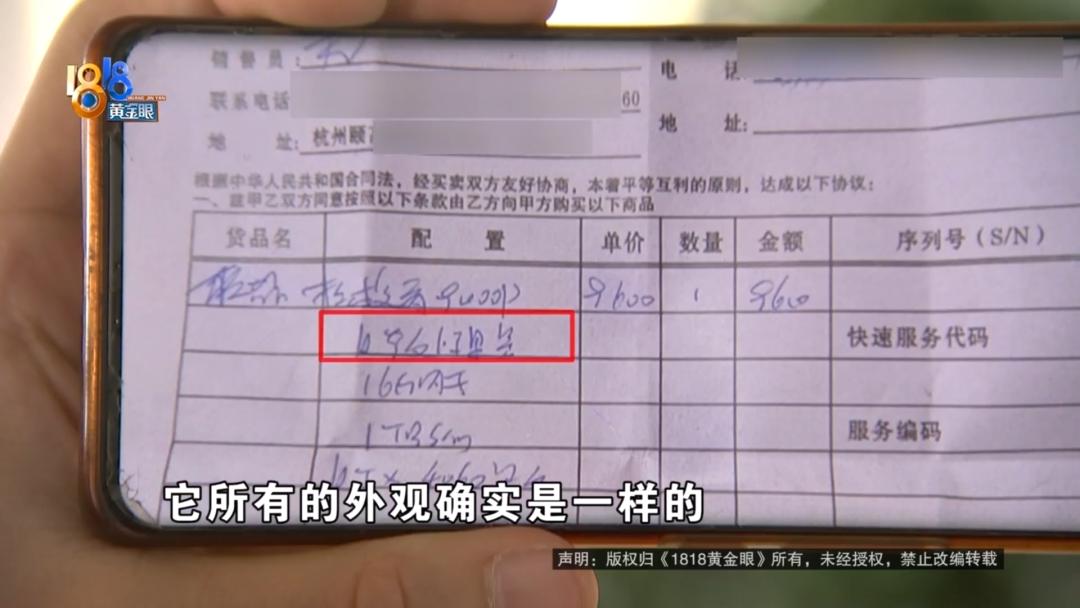 1818
HUANG JIN YAN
黄金眼
销售员：
电 话
联系电话 60
地 址：
地 址：杭州颐高
根据中华人民共和国合同法，经买卖双方友好协商，本着平等互利的原则，达成以下协议：
一、兹甲乙双方同意按照以下条款由乙方向甲方购买以下商品
货品名 配 置 单价 数量 金额 序列号（S/N）
9600 1 9600
快速服务代码
16G内存
1TB
服务编码
它所有的外观确实是一样的
声明：版权归《1818黄金眼》所有，未经授权，禁止改编转载